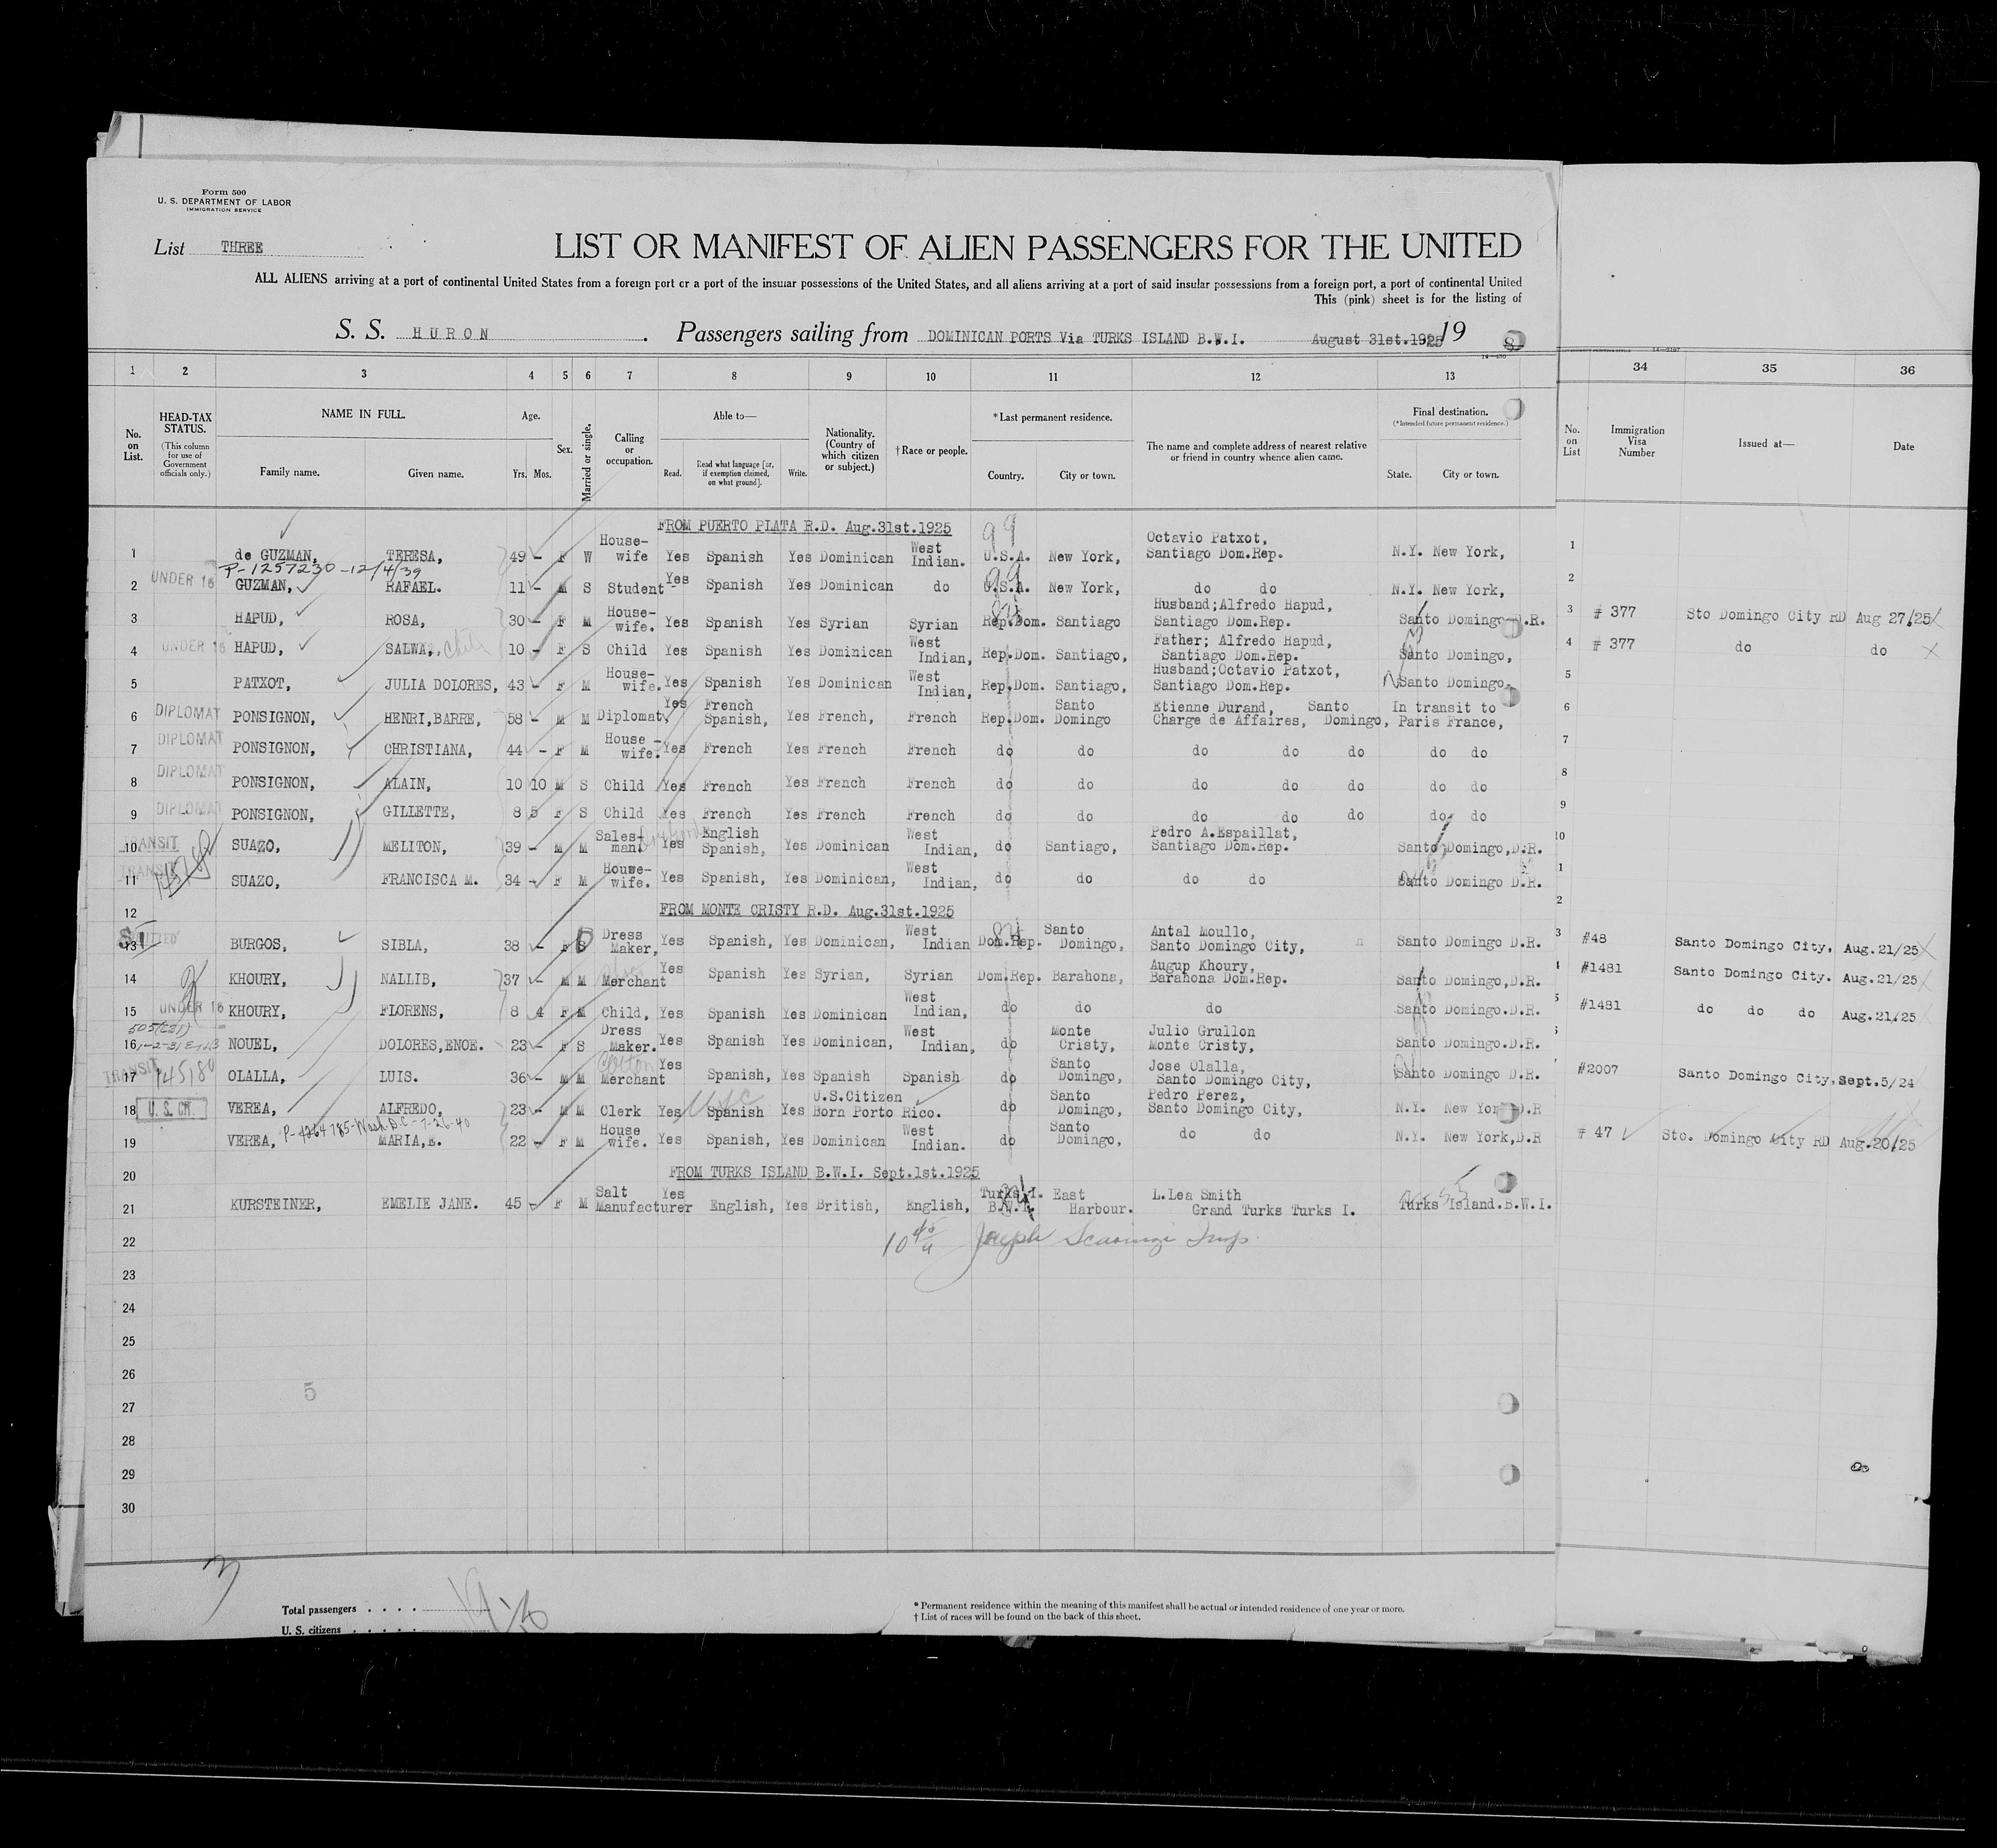 Form 500
U. S. DEPARTMENT OF LABOR
IMMIGRATION SERVICE
List THREE
LIST OR MANIFEST OF ALIEN PASSENGERS FOR THE UNITED
ALL ALIENS arriving at a port of continental United States from a foreign port or a port of the insular possessions of the United States, and all aliens arriving at a port of said insular possessions from a foreign port, a port of continental United
This (pink) sheet is for the listing of
S. S. HURON. Passengers sailing from DOMINICAN PORTS Via TURKS ISLAND B.W.I. August 31st.1925 19
1 2 3 4 5 6 7 8 9 10 11 12 13 34 35 36
No. on List. HEAD-TAX STATUS. (This column for use of Government officials only.) NAME IN FULL. Family name. Given name. Age. Yrs. Mos. Sex. Married or single. Calling or occupation. Able to— Read. Read what language [or, if exemption claimed, on what ground]. Write. Nationality. (Country of which citizen or subject.) †Race or people. *Last permanent residence. Country. City or town. The name and complete address of nearest relative or friend in country whence alien came. Final destination. (*Intended future permanent residence.) State. City or town. No. on List Immigration Visa Number Issued at— Date
FROM PUERTO PLATA R.D. Aug.31st.1925
1 de GUZMAN, TERESA, 49 - F W House-wife Yes Spanish Yes Dominican West Indian. U.S.A. New York, Octavio Patxot, Santiago Dom.Rep. N.Y. New York, 1
P-1257230-12/4/39
2 UNDER 16 GUZMAN, RAFAEL. 11 - M S Student Yes Spanish Yes Dominican do U.S.A. New York, do do N.Y. New York, 2
3 HAPUD, ROSA, 30 - F M House-wife. Yes Spanish Yes Syrian Syrian Rep.Dom. Santiago Husband;Alfredo Hapud, Santiago Dom.Rep. Santo Domingo D.R. 3 # 377 Sto Domingo City RD Aug 27/25
4 UNDER 16 HAPUD, SALWA, 10 - F S Child Yes Spanish Yes Dominican West Indian, Rep.Dom. Santiago, Father; Alfredo Hapud, Santiago Dom.Rep. Santo Domingo, 4 # 377 do do
5 PATXOT, JULIA DOLORES, 43 - F M House-wife. Yes Spanish Yes Dominican West Indian, Rep.Dom. Santiago, Husband;Octavio Patxot, Santiago Dom.Rep. Santo Domingo, 5
6 DIPLOMAT PONSIGNON, HENRI,BARRE, 58 - M M Diplomat, Yes French Spanish, Yes French, French Rep.Dom. Santo Domingo Etienne Durand, Santo Charge de Affaires, Domingo, In transit to Paris France, 6
7 DIPLOMAT PONSIGNON, CHRISTIANA, 44 - F M House-wife. Yes French Yes French French do do do do do do do 7
8 DIPLOMAT PONSIGNON, ALAIN, 10 10 M S Child Yes French Yes French French do do do do do do do 8
9 DIPLOMAT PONSIGNON, GILLETTE, 8 5 F S Child Yes French Yes French French do do do do do do do 9
10 TRANSIT SUAZO, MELITON, 39 - M M Sales-man. Yes English Spanish, Yes Dominican West Indian, do Santiago, Pedro A.Espaillat, Santiago Dom.Rep. Santo Domingo,D.R. 10
11 TRANSIT SUAZO, FRANCISCA M. 34 - F M House-wife. Yes Spanish, Yes Dominican, West Indian, do do do do Santo Domingo D.R. 1
12 FROM MONTE CRISTY R.D. Aug.31st.1925 2
13 SI BURGOS, SIBLA, 38 - F S Dress Maker, Yes Spanish, Yes Dominican, West Indian Dom.Rep. Santo Domingo, Antal Moullo, Santo Domingo City, Santo Domingo D.R. 3 #48 Santo Domingo City. Aug.21/25
14 KHOURY, NALLIB, 37 - M M Merchant Yes Spanish Yes Syrian, Syrian Dom.Rep. Barahona, Augup Khoury, Barahona Dom.Rep. Santo Domingo,D.R. 4 #1481 Santo Domingo City. Aug.21/25
15 UNDER 16 KHOURY, FLORENS, 8 4 F M Child, Yes Spanish Yes Dominican West Indian, do do do Santo Domingo.D.R. 5 #1481 do do do Aug.21/25
16 NOUEL, DOLORES,ENOE. 23 - F S Dress Maker. Yes Spanish Yes Dominican, West Indian, do Monte Cristy, Julio Grullon Monte Cristy, Santo Domingo.D.R.
17 TRANSIT 145180 OLALLA, LUIS. 36 - M M Cotton Merchant Yes Spanish, Yes Spanish Spanish do Santo Domingo, Jose Olalla, Santo Domingo City, Santo Domingo D.R. #2007 Santo Domingo City, Sept.5/24
18 U. S. CIT. VEREA, ALFREDO, 23 - M M Clerk Yes Spanish USC Yes U.S.Citizen Born Porto Rico. do Santo Domingo, Pedro Perez, Santo Domingo City, N.Y. New York D.R
P-4264785-Wash.D.C.-7-26-40
19 VEREA, MARIA,E. 22 - F M House wife. Yes Spanish, Yes Dominican West Indian. do Santo Domingo, do do N.Y. New York,D.R # 47 Sto. Domingo City RD Aug.20/25
20 FROM TURKS ISLAND B.W.I. Sept.1st.1925
21 KURSTEINER, EMELIE JANE. 45 - F M Salt Manufacturer Yes English, Yes British, English, Turks I. B.W.I. East Harbour. L.Lea Smith Grand Turks Turks I. Turks Island.B.W.I.
22 Joseph Insp.
23
24
25
26
5
27
28
29
30
Total passengers . . . .
U. S. citizens . . . . .
* Permanent residence within the meaning of this manifest shall be actual or intended residence of one year or more.
† List of races will be found on the back of this sheet.